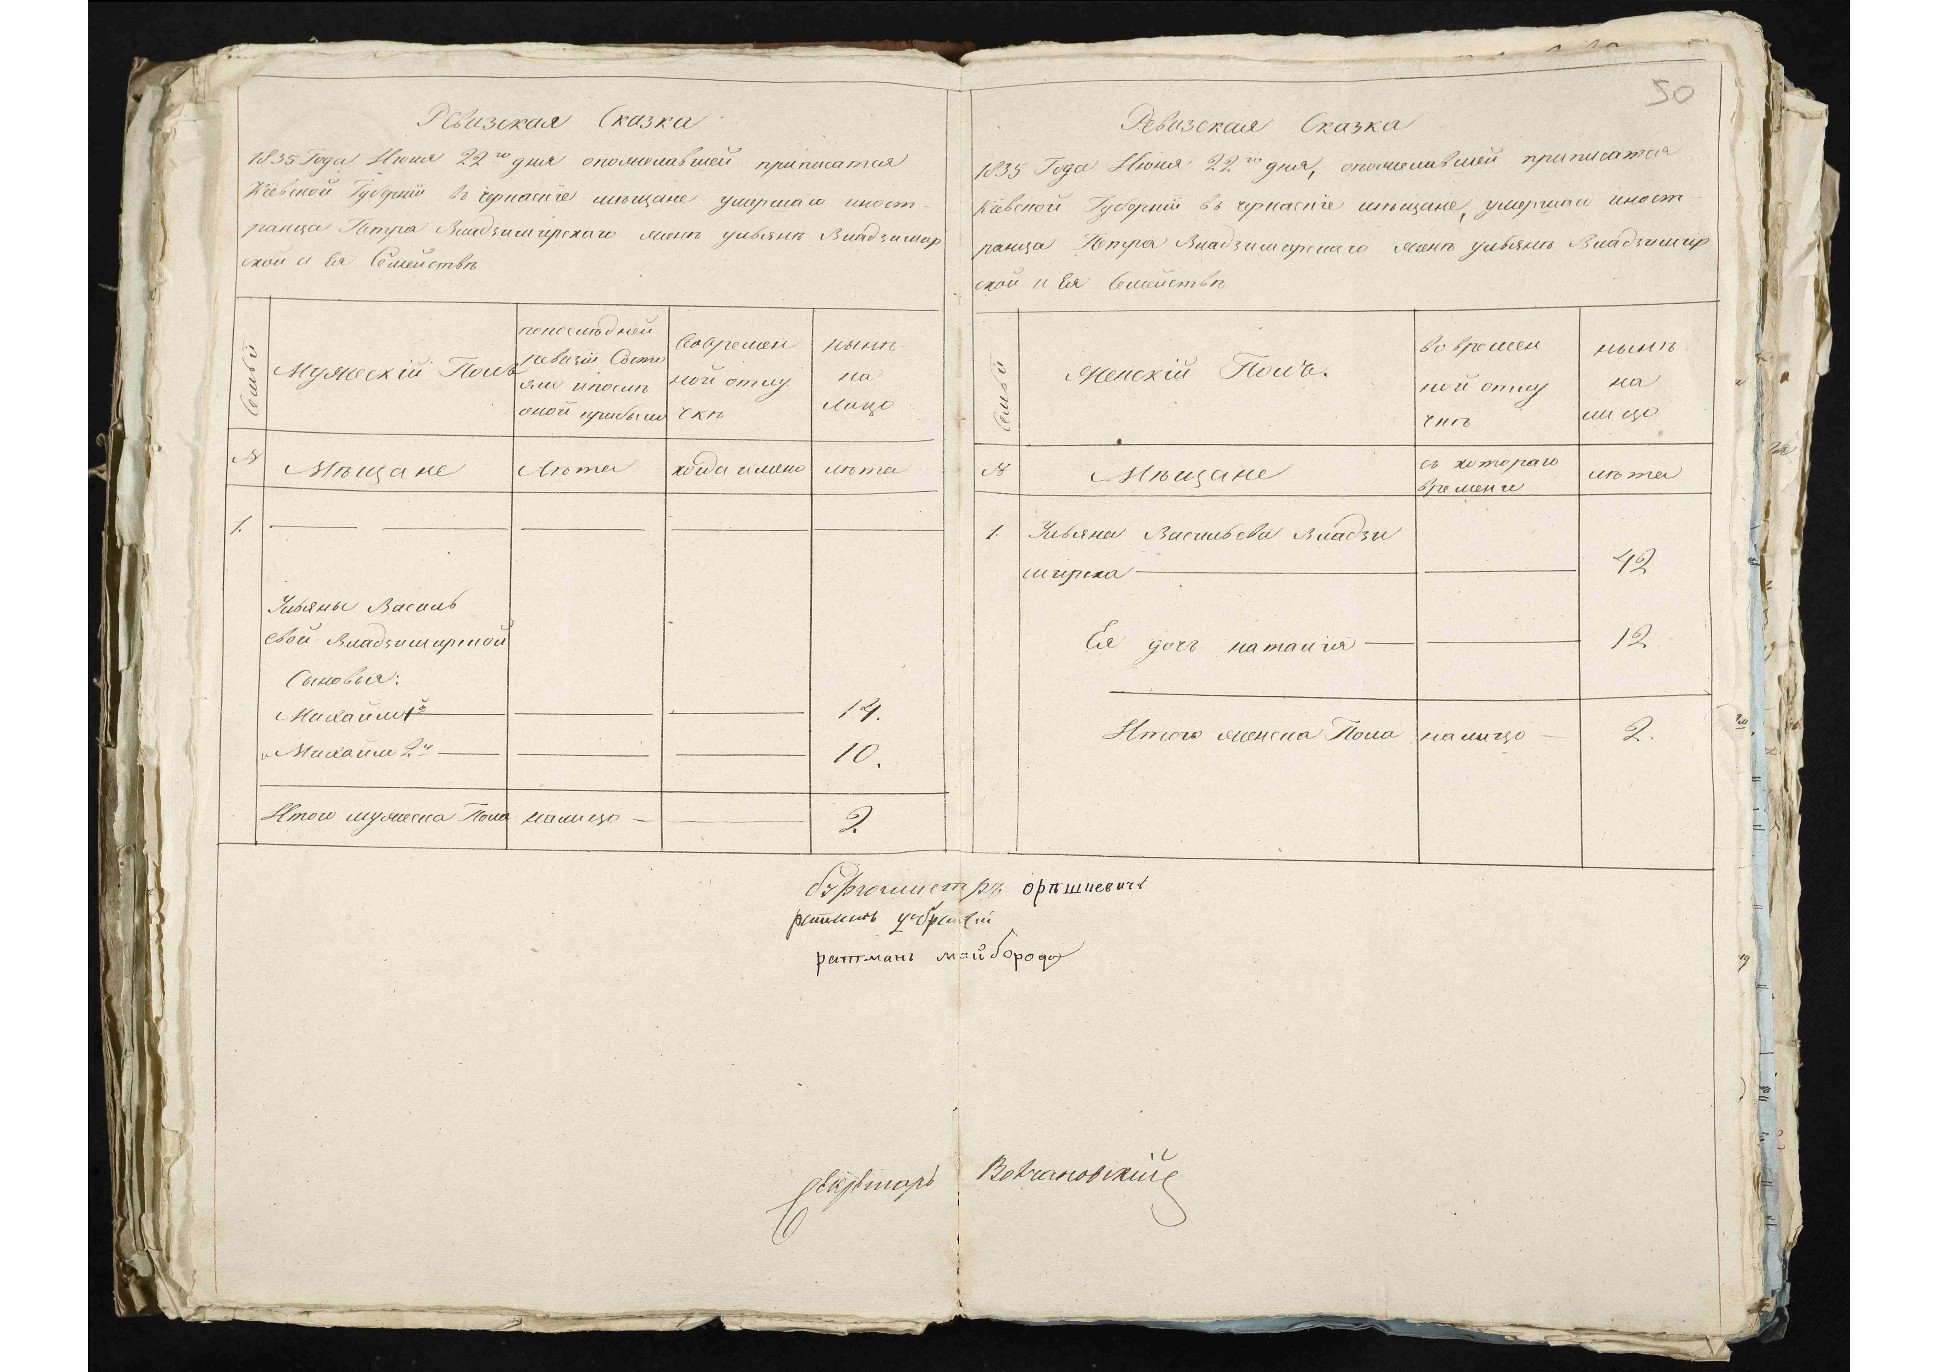 Ревизская Сказка
1835 Года Июня 22го дня опожелавшей приписатся
Кіевской Губерніи въ черкасkіе мѣщане умершаго иност-
ранца Петра Владзимирскаго женѣ ульянѣ Владзимир
ской и Ея Семействѣ
Семьи
Мужескій Полъ
попослѣдней
ревизіи Состо
яло ипосли
оной прибыло
вовремен
ной отлу
чкѣ
нынѣ
на
лицо
№
Мѣщане
Лѣта
когда имено
лѣта
1.
Ульяны Василь
евой Владзимирской
Сыновья:
Михайло 1й
14.
Михайло 2й
10.
Итого мужеска Пола налицо
2.
50
Ревизская Сказка
1835 Года Июня 22го дня, опожелавшей приписатся
Кіевской Губерніи въ черкасkіе мѣщане, умершаго иност-
ранца Петра Владзимирскаго женѣ ульянѣ Владзимир
ской и Ея Семействѣ
Семьи
Женскій Полъ.
во времен
ной отлу
чкѣ
нынѣ
на
лицо
№
Мѣщане
съ котораго
времени
лѣта
1.
Ульяна Васильева Владзи
мирска
42
Ея дочь наталія
12
Итого женска Пола налицо
2.
бургомистръ орѣшкевичъ
ратманъ
ратманъ майборода
Секретарь Вовчановскій